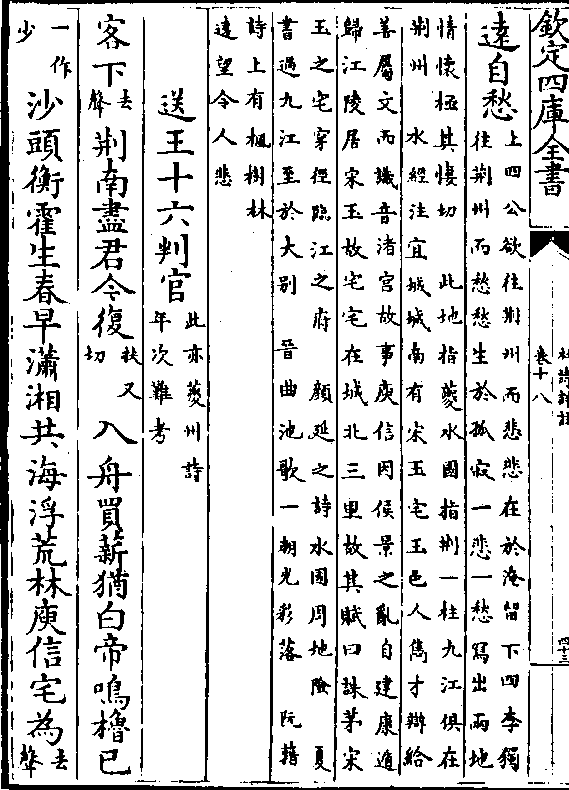 欽定四庫全書
卷十八
四十三
遠自愁上四公欲往荆州而悲悲在於淹留下四李獨
往荆州而愁愁生於孤寂一悲一愁冩出兩地
情懷極其悽切 此地指夔水國指荆一柱九江俱在
荆州 水經注宜城城南有宋玉宅玉邑人雋才辯給
善屬文而識音渚宮故事庾信因侯景之亂自建康遁
歸江陵居宋玉故宅宅在城北三里故其賦曰誅茅宋
玉之宅穿徑臨江之府 顔延之詩水國周地險 夏
書過九江至於大别 晉曲池歌一朝光彩落 阮籍
詩上有楓樹林
遠望令人悲
送王十六判官此亦夔州詩
年次難考
客下去聲荆南盡君今復扶又切入舟買薪猶白帝鳴櫓已
一作少沙頭衡霍生春早瀟湘共海浮荒林庾信宅為去聲